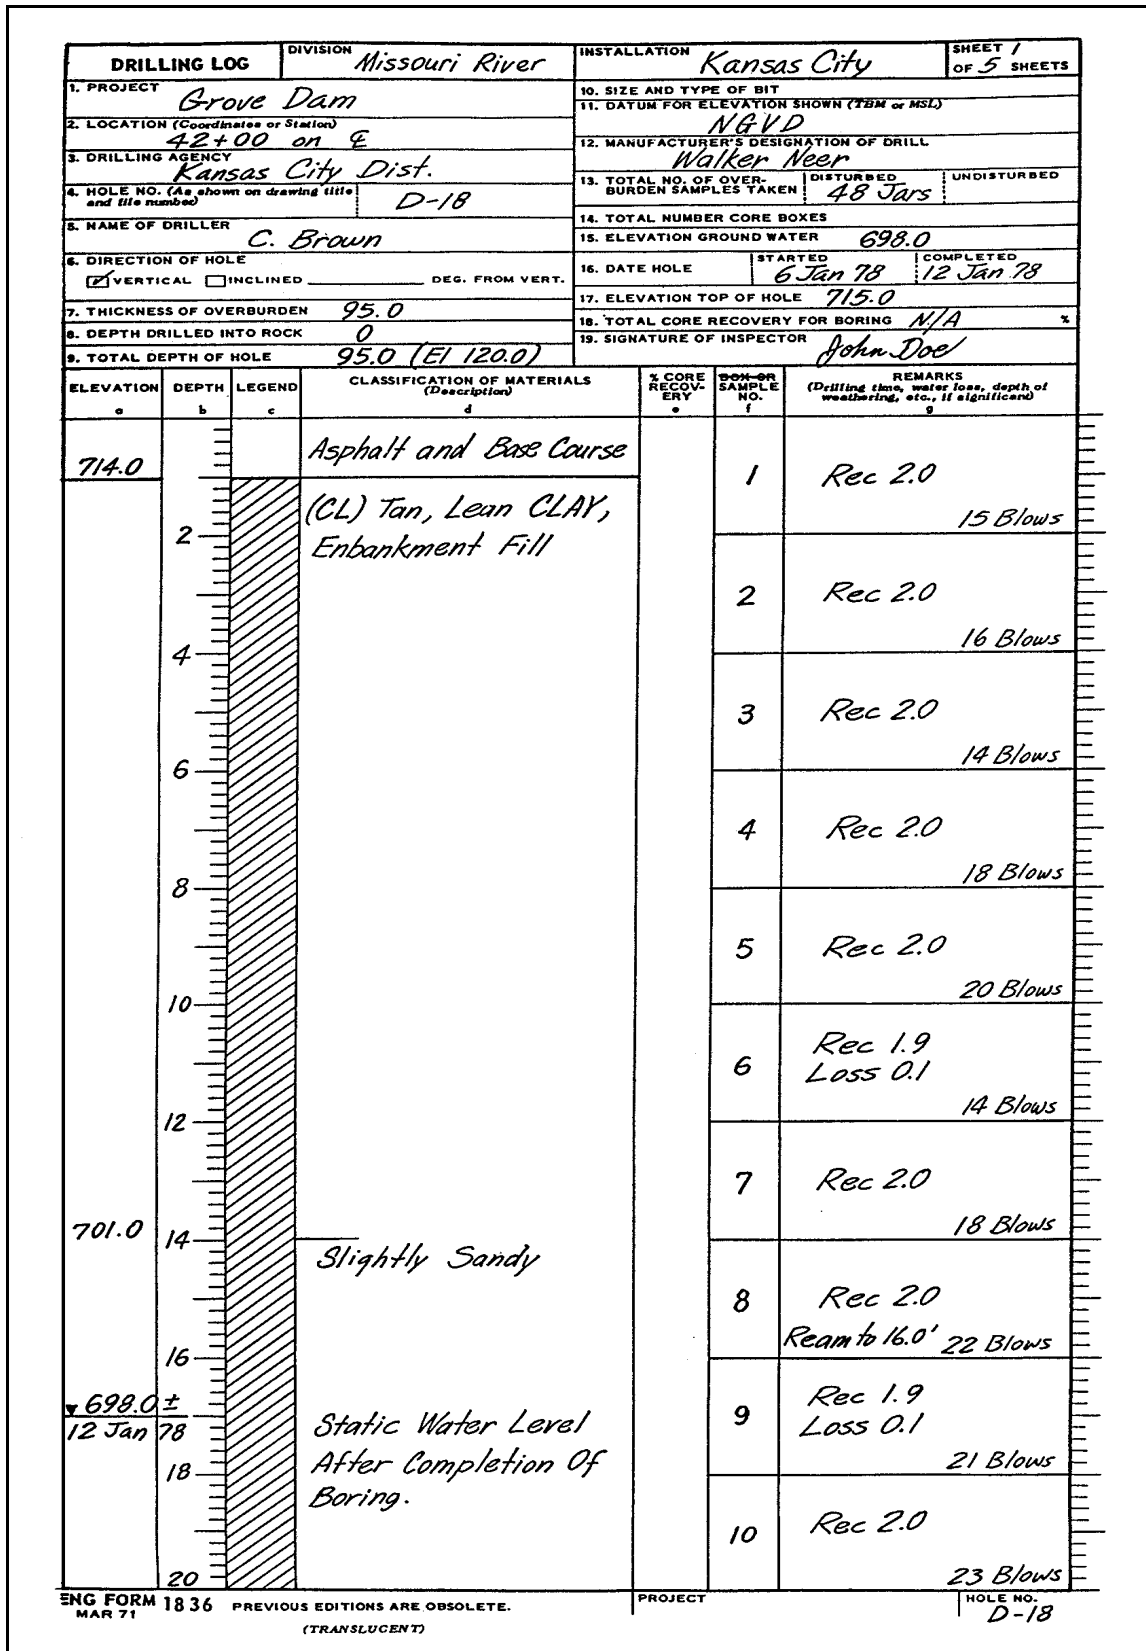 DRILLING LOG
DIVISION
Missouri River
INSTALLATION
Kansas City
SHEET 1
OF 5 SHEETS
1. PROJECT
Grove Dam
2. LOCATION (Coordinates or Station)
42+00 on ℄
3. DRILLING AGENCY
Kansas City Dist.
4. HOLE NO. (As shown on drawing title
and file number)
D-18
5. NAME OF DRILLER
C. Brown
6. DIRECTION OF HOLE
☑ VERTICAL ☐ INCLINED ________ DEG. FROM VERT.
7. THICKNESS OF OVERBURDEN 95.0
8. DEPTH DRILLED INTO ROCK 0
9. TOTAL DEPTH OF HOLE 95.0 (El 120.0)
10. SIZE AND TYPE OF BIT
11. DATUM FOR ELEVATION SHOWN (TBM or MSL)
NGVD
12. MANUFACTURER'S DESIGNATION OF DRILL
Walker Neer
13. TOTAL NO. OF OVER-
BURDEN SAMPLES TAKEN
DISTURBED
48 Jars
UNDISTURBED
14. TOTAL NUMBER CORE BOXES
15. ELEVATION GROUND WATER 698.0
16. DATE HOLE
STARTED
6 Jan 78
COMPLETED
12 Jan 78
17. ELEVATION TOP OF HOLE 715.0
18. TOTAL CORE RECOVERY FOR BORING N/A %
19. SIGNATURE OF INSPECTOR
John Doe
ELEVATION
a
DEPTH
b
LEGEND
c
CLASSIFICATION OF MATERIALS
(Description)
d
% CORE
RECOV-
ERY
e
BOX OR
SAMPLE
NO.
f
REMARKS
(Drilling time, water loss, depth of
weathering, etc., if significant)
g
Asphalt and Base Course
714.0
1
Rec 2.0
15 Blows
(CL) Tan, Lean CLAY,
Enbankment Fill
2
2
Rec 2.0
16 Blows
4
3
Rec 2.0
14 Blows
6
4
Rec 2.0
18 Blows
8
5
Rec 2.0
20 Blows
10
6
Rec 1.9
Loss 0.1
14 Blows
12
7
Rec 2.0
18 Blows
701.0
14
Slightly Sandy
8
Rec 2.0
Ream to 16.0' 22 Blows
16
698.0 ±
12 Jan 78
Static Water Level
After Completion Of
Boring.
9
Rec 1.9
Loss 0.1
21 Blows
18
10
Rec 2.0
23 Blows
20
ENG FORM 1836
MAR 71
PREVIOUS EDITIONS ARE OBSOLETE.
(TRANSLUCENT)
PROJECT
HOLE NO.
D-18